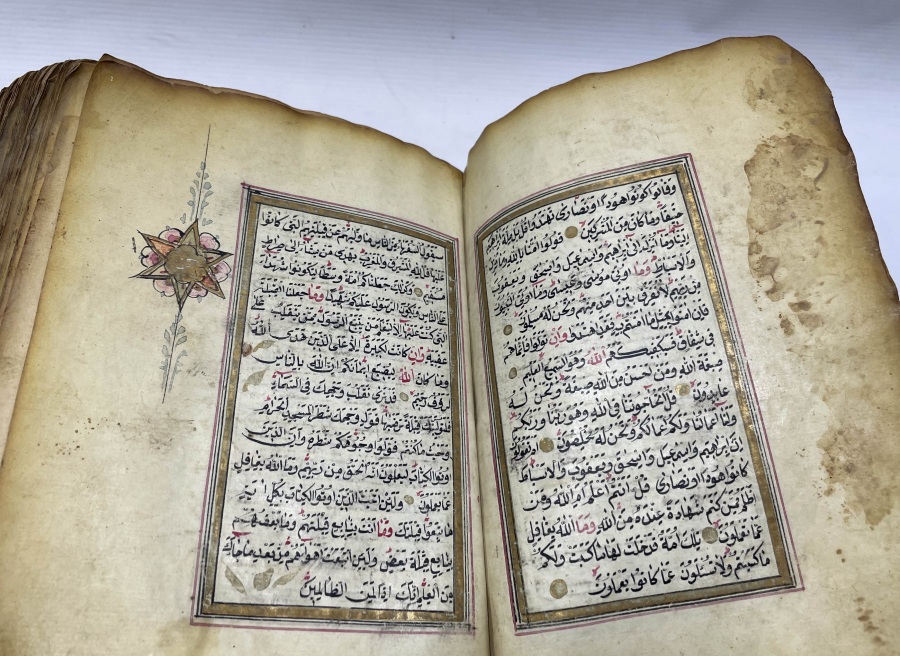 وقالوا كونوا هودا او نصارى تهتدوا قل بل ملة ابراهيم
حنيفا وما كان من المشركين قولوا امنا بالله وما انزل
الينا وما انزل الى ابراهيم واسمعيل واسحق ويعقوب
والاسباط وما اوتى موسى وعيسى وما اوتى النبيون
من ربهم لا نفرق بين احد منهم ونحن له مسلمون
فان امنوا بمثل ما امنتم به فقد اهتدوا وان تولوا فانما هم
فى شقاق فسيكفيكهم الله وهو السميع العليم
صبغة الله ومن احسن من الله صبغة ونحن له
عابدون قل اتحاجوننا فى الله وهو ربنا وربكم
ولنا اعمالنا ولكم اعمالكم ونحن له مخلصون ام تقولون
ان ابراهيم واسمعيل واسحق ويعقوب والاسباط
كانوا هودا او نصارى قل أانتم اعلم ام الله ومن
اظلم ممن كتم شهادة عنده من الله وما الله بغافل
عما تعملون تلك امة قد خلت لها ما كسبت ولكم
ما كسبتم ولا تسئلون عما كانوا يعملون
سيقول السفهاء من الناس ما وليهم عن قبلتهم التى كانوا
عليها قل لله المشرق والمغرب يهدى من يشاء الى صراط
مستقيم وكذلك جعلناكم امة وسطا لتكونوا شهداء
على الناس ويكون الرسول عليكم شهيدا وما جعلنا القبلة
التى كنت عليها الا لنعلم من يتبع الرسول ممن ينقلب على
عقبيه وان كانت لكبيرة الا على الذين هدى الله
وما كان الله ليضيع ايمانكم ان الله بالناس
لرؤف رحيم قد نرى تقلب وجهك فى السماء
فلنولينك قبلة ترضيها فول وجهك شطر المسجد الحرام
وحيث ما كنتم فولوا وجوهكم شطره وان الذين
اوتوا الكتاب ليعلمون انه الحق من ربهم وما الله بغافل
عما يعملون ولئن اتيت الذين اوتوا الكتاب بكل اية
ما تبعوا قبلتك وما انت بتابع قبلتهم وما بعضهم
بتابع قبلة بعض ولئن اتبعت اهواءهم من بعد ما جاءك
من العلم انك اذا لمن الظالمين